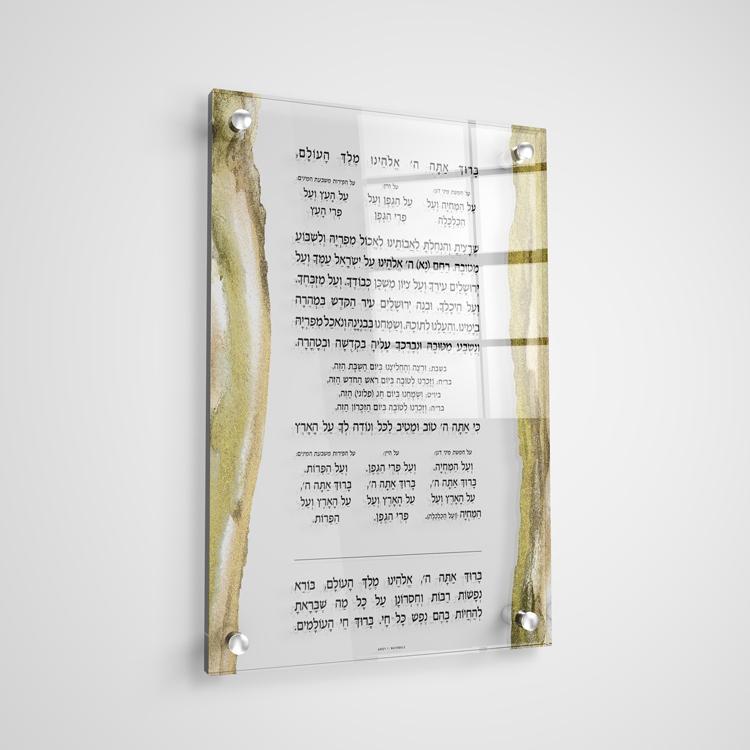 בָּרוּךְ אַתָּה ה' אֱלֹהֵינוּ מֶלֶךְ הָעוֹלָם,
על חמשת מיני דגן:
עַל הַמִּחְיָה וְעַל
הַכַּלְכָּלָה
על היין:
עַל הַגֶּפֶן וְעַל
פְּרִי הַגֶּפֶן
על הפירות משבעת המינים:
עַל הָעֵץ וְעַל
פְּרִי הָעֵץ
שֶׁרָצִיתָ וְהִנְחַלְתָּ לַאֲבוֹתֵינוּ לֶאֱכוֹל מִפִּרְיָהּ וְלִשְׂבּוֹעַ
מִטּוּבָהּ. רַחֵם (נָא) ה' אֱלֹהֵינוּ עַל יִשְׂרָאֵל עַמֶּךָ וְעַל
יְרוּשָׁלַיִם עִירֶךָ וְעַל צִיּוֹן מִשְׁכַּן כְּבוֹדֶךָ. וְעַל מִזְבְּחֶךָ.
וְעַל הֵיכָלֶךָ. וּבְנֵה יְרוּשָׁלַיִם עִיר הַקֹּדֶשׁ בִּמְהֵרָה
בְיָמֵינוּ. וְהַעֲלֵנוּ לְתוֹכָהּ. וְשַׂמְּחֵנוּ בְּבִנְיָנָהּ וְנֹאכַל מִפִּרְיָהּ
וְנִשְׂבַּע מִטּוּבָהּ וּנְבָרֶכְךָ עָלֶיהָ בִּקְדֻשָּׁה וּבְטָהֳרָה.
בשבת: וּרְצֵה וְהַחֲלִיצֵנוּ בְּיוֹם הַשַּׁבָּת הַזֶּה,
בר״ח: וְזָכְרֵנוּ לְטוֹבָה בְּיוֹם רֹאשׁ הַחֹדֶשׁ הַזֶּה,
ביו״ט: וְשַׂמְּחֵנוּ בְּיוֹם חַג (פלוני) הַזֶּה,
בר״ה: וְזָכְרֵנוּ לְטוֹבָה בְּיוֹם הַזִּכָּרוֹן הַזֶּה,
כִּי אַתָּה ה' טוֹב וּמֵטִיב לַכֹּל וְנוֹדֶה לְךָ עַל הָאָרֶץ
על חמשת מיני דגן:
וְעַל הַמִּחְיָה.
בָּרוּךְ אַתָּה ה',
עַל הָאָרֶץ וְעַל
הַמִּחְיָה (וְעַל הַכַּלְכָּלָה).
על היין:
וְעַל פְּרִי הַגֶּפֶן.
בָּרוּךְ אַתָּה ה',
עַל הָאָרֶץ וְעַל
פְּרִי הַגֶּפֶן.
על הפירות משבעת המינים:
וְעַל הַפֵּרוֹת.
בָּרוּךְ אַתָּה ה',
עַל הָאָרֶץ וְעַל
הַפֵּרוֹת.
בָּרוּךְ אַתָּה ה', אֱלֹהֵינוּ מֶלֶךְ הָעוֹלָם, בּוֹרֵא
נְפָשׁוֹת רַבּוֹת וְחֶסְרוֹנָן עַל כָּל מַה שֶּׁבָּרָאתָ
לְהַחֲיוֹת בָּהֶם נֶפֶשׁ כָּל חָי. בָּרוּךְ חֵי הָעוֹלָמִים.